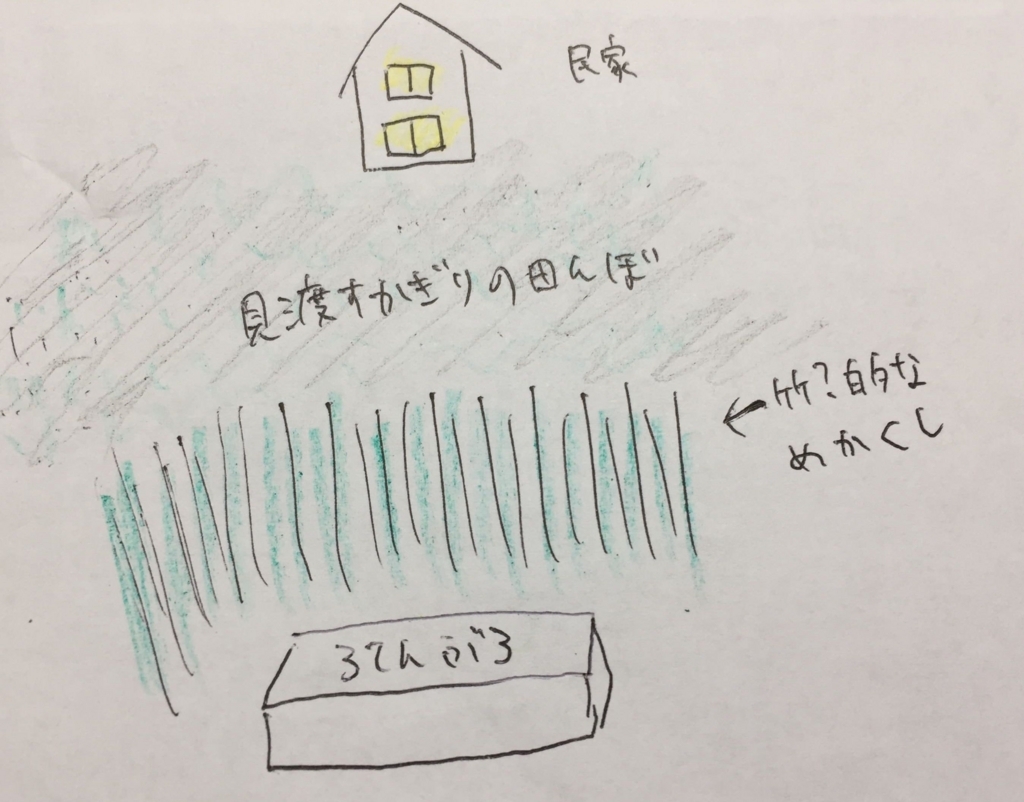 民家
見渡すかぎりの田んぼ
竹?的な
めかくし
ろてんぶろ